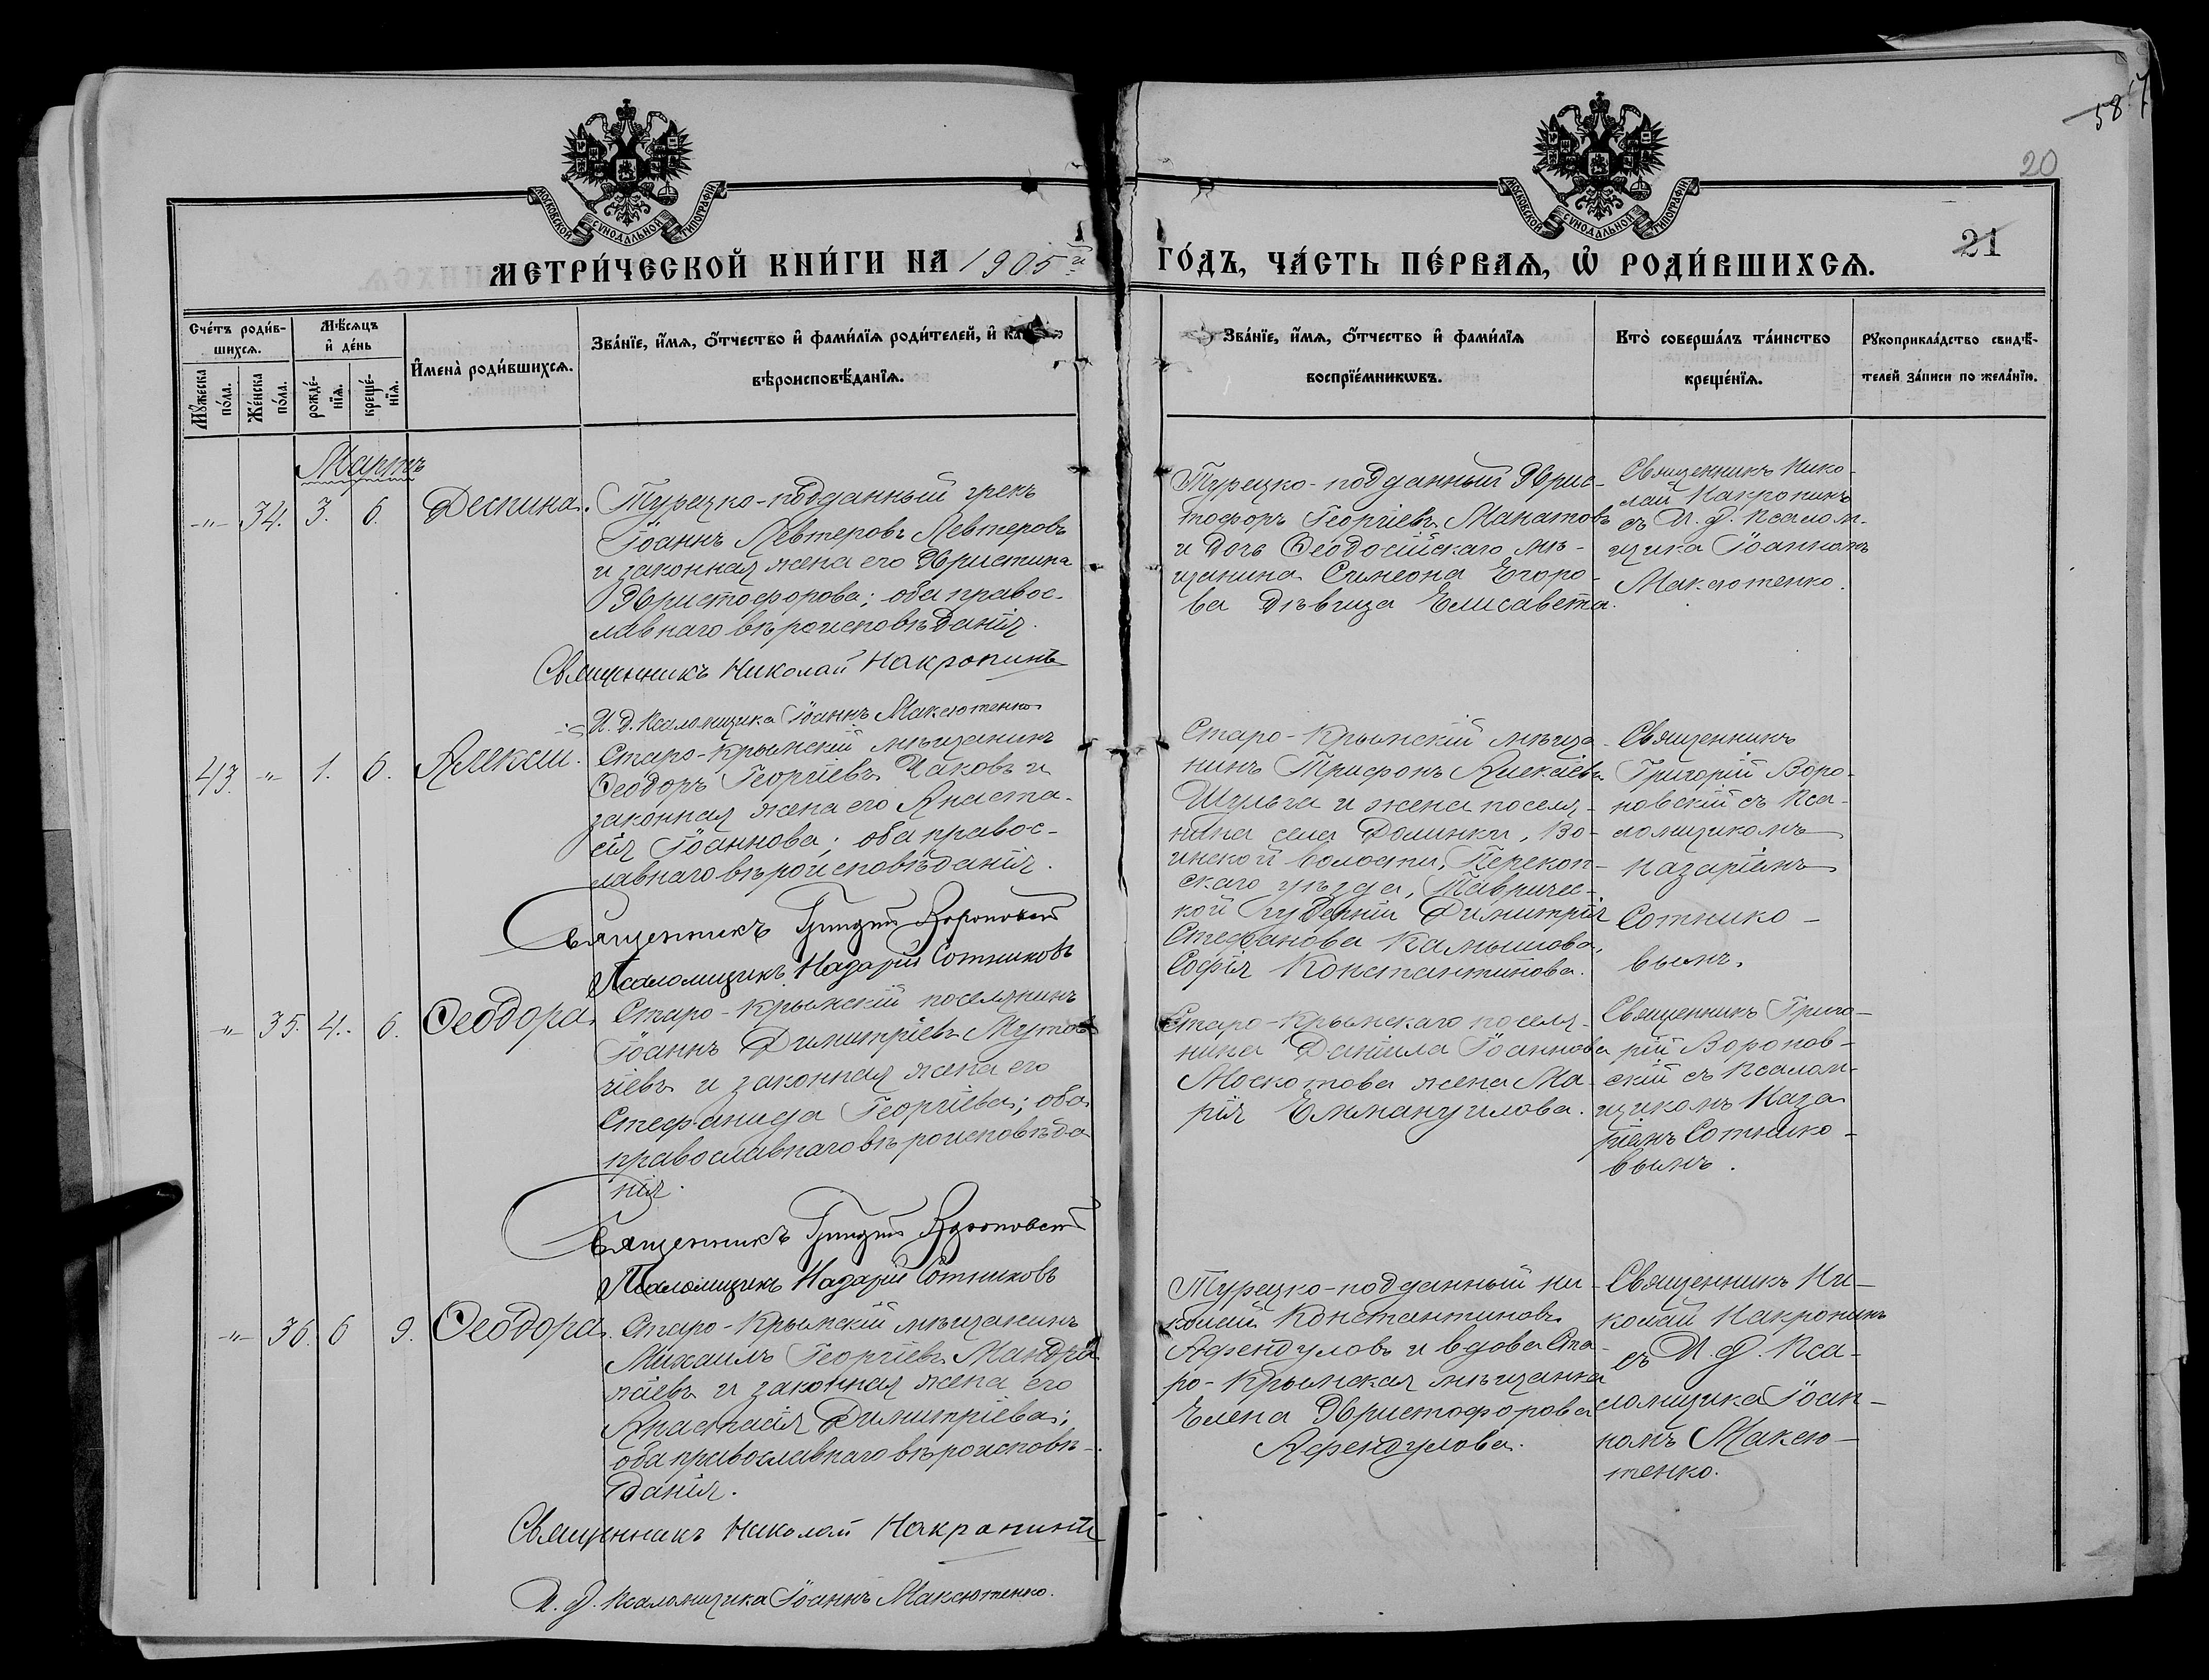 58
20
21
МОСКОВСКОЙ СѴНОДАЛЬНОЙ ТИПОГРАФІИ
МОСКОВСКОЙ СѴНОДАЛЬНОЙ ТИПОГРАФІИ
МЕТРИ́ЧЕСКОЙ КНИ́ГИ НА 1905й
ГО́ДЪ, ЧА́СТЬ ПЕ́РВАѦ, Ѡ҆ РОДИ́ВШИХСѦ.
Сче́тъ роди́в-
шихсѧ.
Мꙋ́жеска по́ла.
Же́нска по́ла.
Мѣ́сѧцъ
и҆ де́нь
рожде́-
нїѧ.
креще́-
нїѧ.
И҆мена̀ роди́вшихсѧ.
Зва́нїе, и҆́мѧ, о҆́тчество и҆ фами́лїѧ роди́телей, и҆
вѣроисповѣ́данїѧ.
Зва́нїе, и҆́мѧ, о҆́тчество и҆ фами́лїѧ
воспрїе́мникѡвъ.
Кто̀ соверша́лъ та́инство
креще́нїѧ.
Рꙋкоприкла́дство свидѣ́-
телей за́писи по жела́нїю.
Мартъ
-"- 34. 3. 6. Деспина.
Турецко-подданный грекъ
Іоаннъ Левтеровъ Левтеровъ
и законная жена его Христина
Христофорова; оба правос-
лавнаго вѣроисповѣданія.
Священникъ Николай Накропинъ
И. д. Псаломщика Іоаннъ Максютенко
Турецко-подданный Хрис-
тофоръ Георгіевъ Манатовъ
и дочь Ѳеодосійскаго мѣ-
щанина Симеона Егоро-
ва дѣвица Елисавета.
Священникъ Нико-
лай Накропинъ
съ И. д. Псалом-
щика Іоанномъ
Максютенко.
43. " 1. 6. Алексій.
Старо-Крымскій мѣщанинъ
Ѳеодоръ Георгіевъ Чаковъ и
законная жена его Анаста-
сія Іоаннова; оба правос-
лавнаго вѣроисповѣданія.
Священникъ Григорій Вороновскій
Псаломщикъ Назарій Сотниковъ
Старо-Крымскій мѣща-
нинъ Трифонъ Алексіевъ
Шульга и жена поселя-
нина села Долинки, Во-
инской волости, Перекоп-
скаго уѣзда, Тавричес-
кой губерніи Димитрія
Стефанова Камышова,
Софія Константинова.
Священникъ
Григорій Воро-
новскій съ Пса-
ломщикомъ
Назаріемъ
Сотнико-
вымъ.
-"- 35. 4. 6. Ѳеодора.
Старо-Крымскій поселянинъ
Іоаннъ Димитріевъ Мутав-
чіевъ и законная жена его
Стефанида Георгіева; оба
православнаго вѣроисповѣда-
нія.
Священникъ Григорій Вороновскій
Псаломщикъ Назарій Сотниковъ
Старо-Крымскаго поселя-
нина Даніила Іоаннова
Москотова жена Ма-
рія Еммануилова.
Священникъ Григо-
рій Воронов-
скій съ Псалом-
щикомъ Наза-
ріемъ Сотнико-
вымъ.
-"- 36. 6 9. Ѳеодора.
Старо-Крымскій мѣщанинъ
Михаилъ Георгіевъ Мандра-
жіевъ и законная жена его
Анастасія Димитріева;
оба православнаго вѣроисповѣ-
данія.
Священникъ Николай Накропинъ
И. д. Псаломщика Іоаннъ Максютенко.
Турецко-подданный Ни-
колай Константиновъ
Афендуловъ и вдова Ста-
ро-Крымская мѣщанка
Елена Христофорова
Афендулова.
Священникъ Ни-
колай Накропинъ
съ И. д. Пса-
ломщика Іоан-
номъ Максю-
тенко.